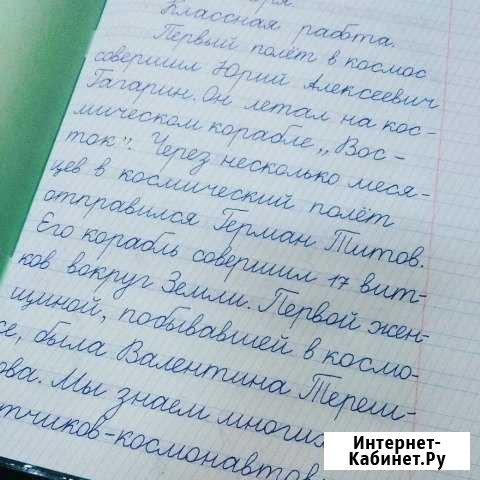 Классная работа.
Первый полёт в космос
совершил Юрий Алексеевич
Гагарин. Он летал на кос-
мическом корабле „Вос-
ток". Через несколько меся-
цев в космический полёт
отправился Герман Титов.
Его корабль совершил 17 вит-
ков вокруг Земли. Первой жен-
щиной, побывавшей в космо-
се, была Валентина Тереш-
ова. Мы знаем многих
тчиков-космонавтов
Интернет-
Кабинет.Ру